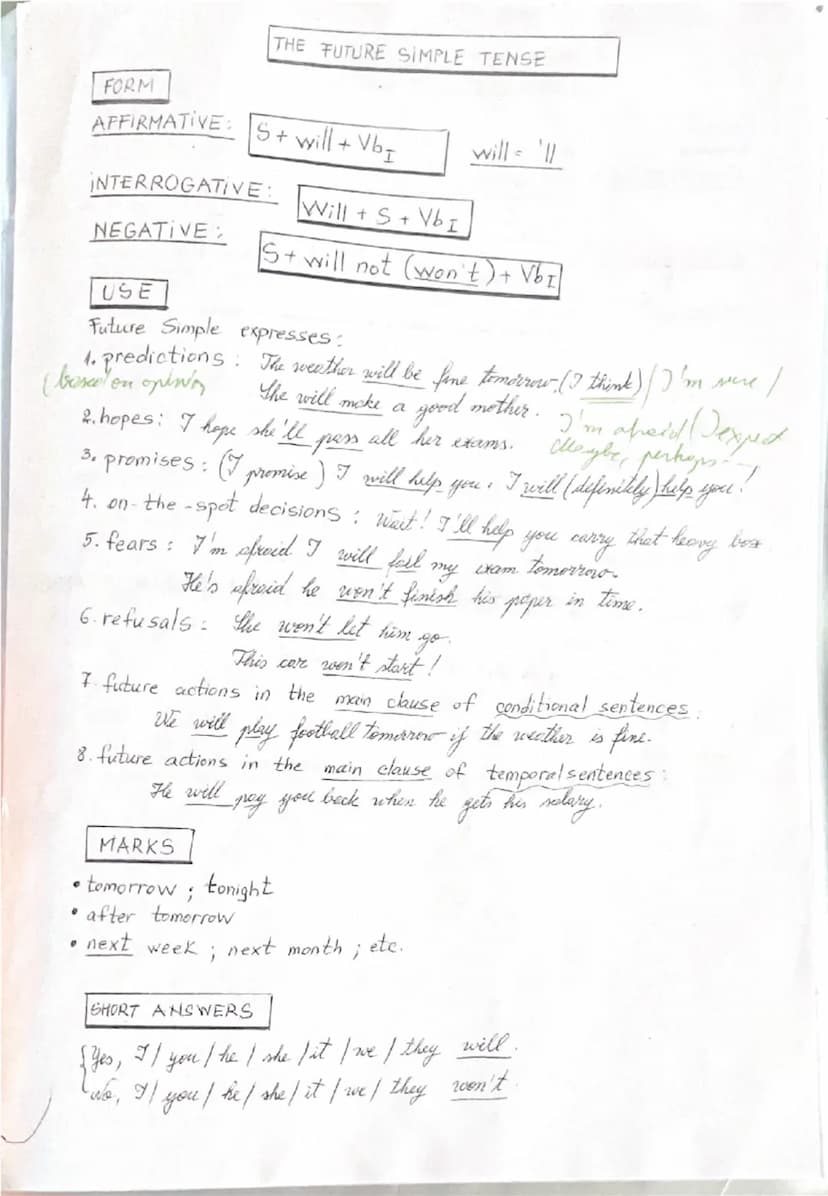 THE FUTURE SIMPLE TENSE
FORM
AFFIRMATIVE: S + will + VbI will = 'll
INTERROGATIVE: Will + S + VbI
NEGATIVE: S + will not (won't) + VbI
USE
Future Simple expresses:
1. predictions: The weather will be fine tomorrow. (I think) / I'm sure /
(based on opinion) She will make a good mother. I'm afraid / I expect
2. hopes: I hope she'll pass all her exams. Maybe, perhaps...
3. promises: (I promise) I will help you. I will (definitely) help you!
4. on-the-spot decisions: Wait! I'll help you carry that heavy box
5. fears: I'm afraid I will fail my exam tomorrow.
He's afraid he won't finish his paper in time.
6. refusals: She won't let him go.
This car won't start!
7. future actions in the main clause of conditional sentences:
We will play football tomorrow if the weather is fine.
8. future actions in the main clause of temporal sentences:
He will pay you back when he gets his salary.
MARKS
• tomorrow ; tonight
• after tomorrow
• next week ; next month ; etc.
SHORT ANSWERS
{Yes, I / you / he / she / it / we / they will.
No, I / you / he / she / it / we / they won't.